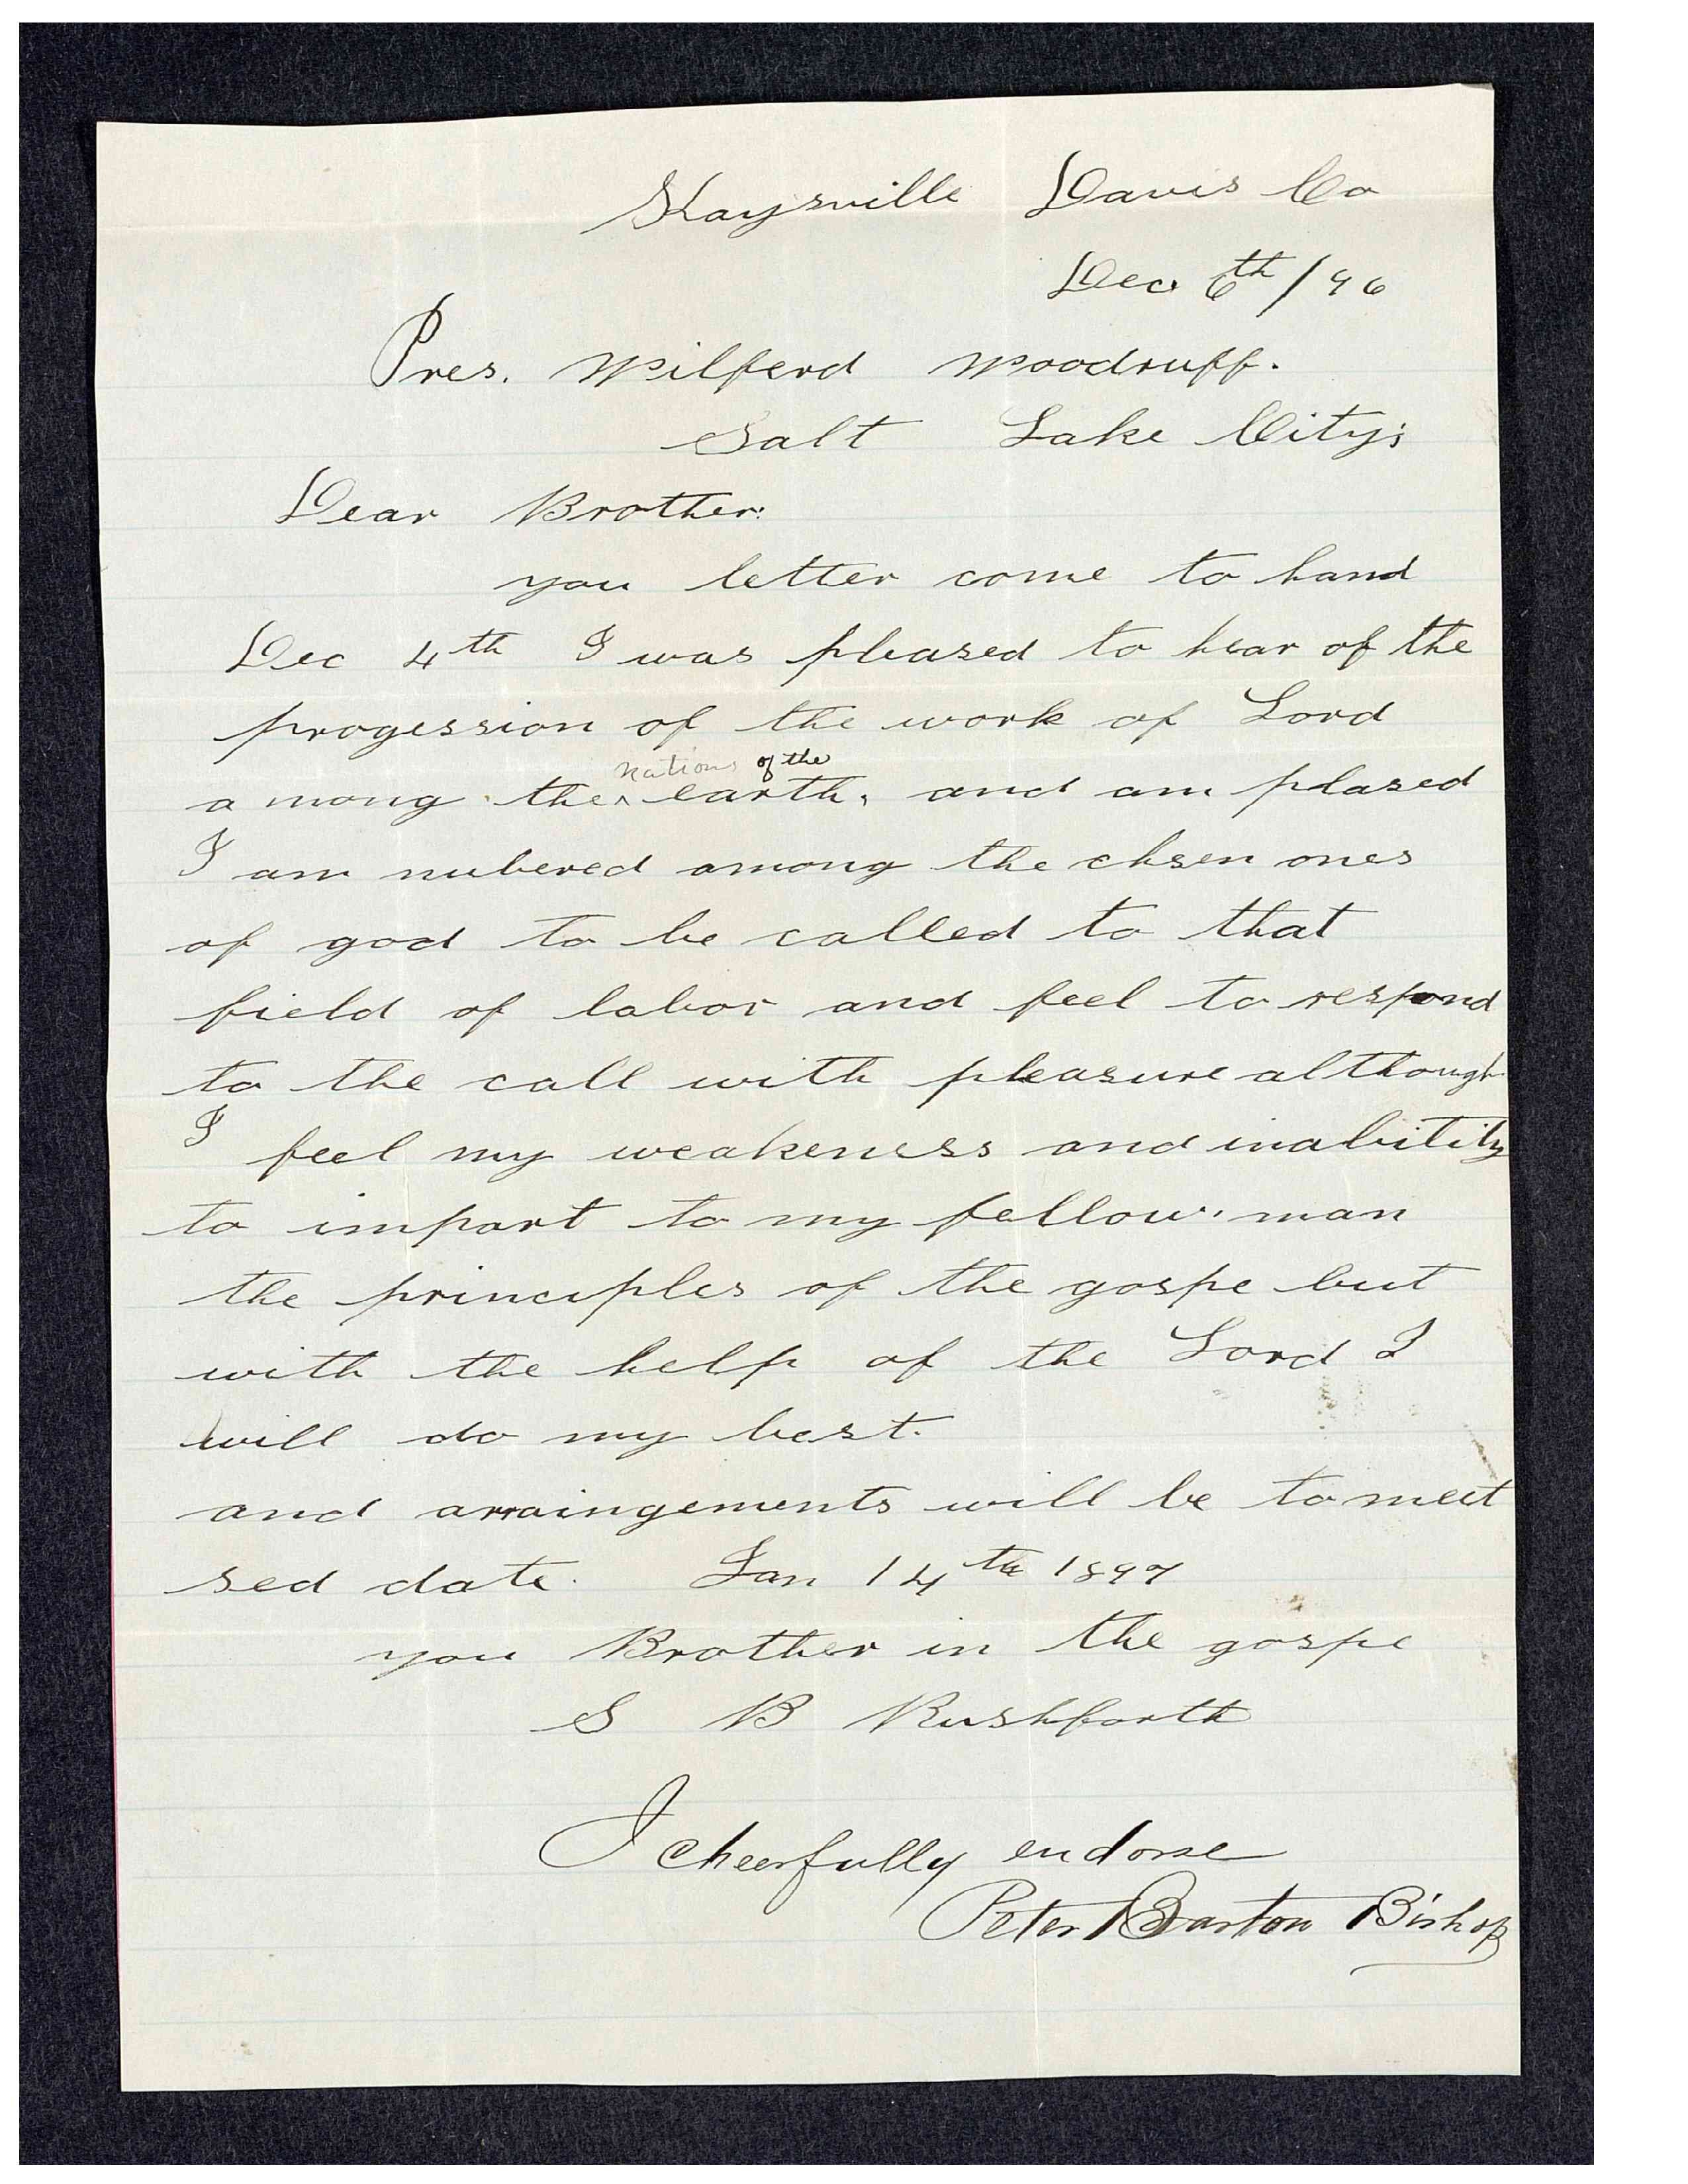 Kaysville Davis Co
Dec 6th/96
Pres. Wilferd Woodruff.
Salt Lake City;
Dear Brother:
you letter come to hand
Dec 4th I was pleased to hear of the
progession of the work of Lord
nations of the
a mong the ^ earth, and am plased
I am nubered among the chsen ones
of god to be called to that
field of labor and feel to respond
to the call with pleasure although
I feel my weakeness and inabitity
to impart to my fellow man
the principles of the gospe but
with the help of the Lord I
will do my best.
and arraingements will be to meet
sed date. Jan 14th 1897
you Brother in the gospe
S B Rushforth
I cheerfully endorse
Peter Barton Bishop